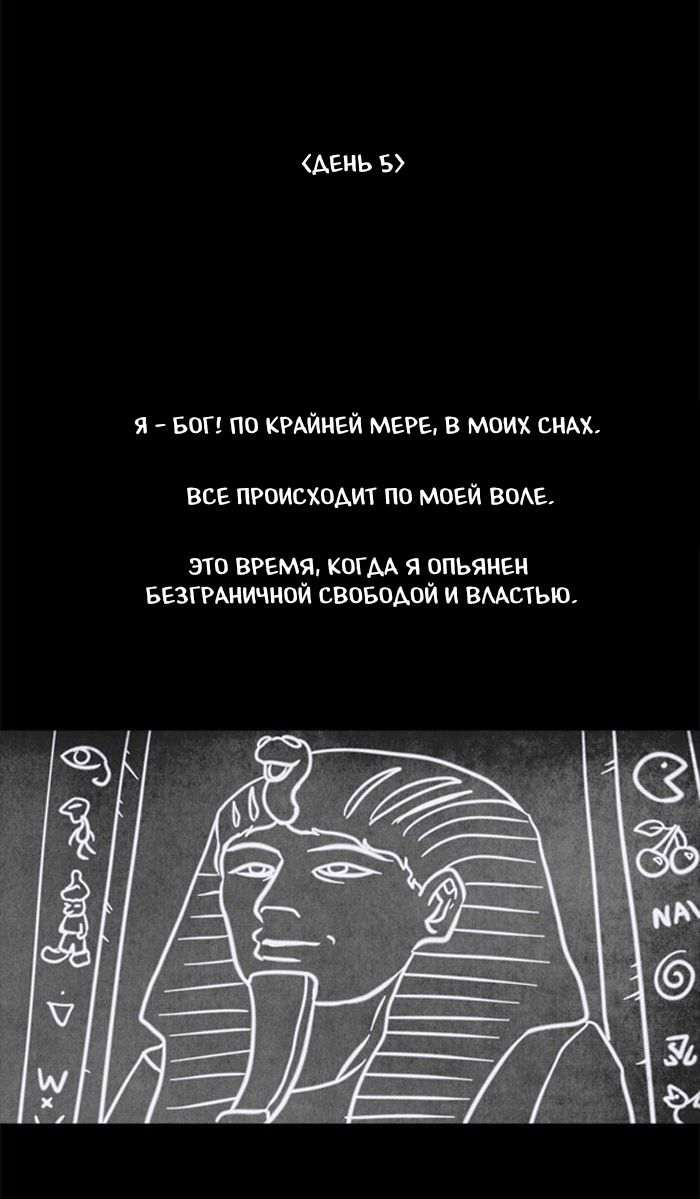 <ДЕНЬ 5>
Я - БОГ! ПО КРАЙНЕЙ МЕРЕ, В МОИХ СНАХ.
ВСЕ ПРОИСХОДИТ ПО МОЕЙ ВОЛЕ.
ЭТО ВРЕМЯ, КОГДА Я ОПЬЯНЕН
БЕЗГРАНИЧНОЙ СВОБОДОЙ И ВЛАСТЬЮ.